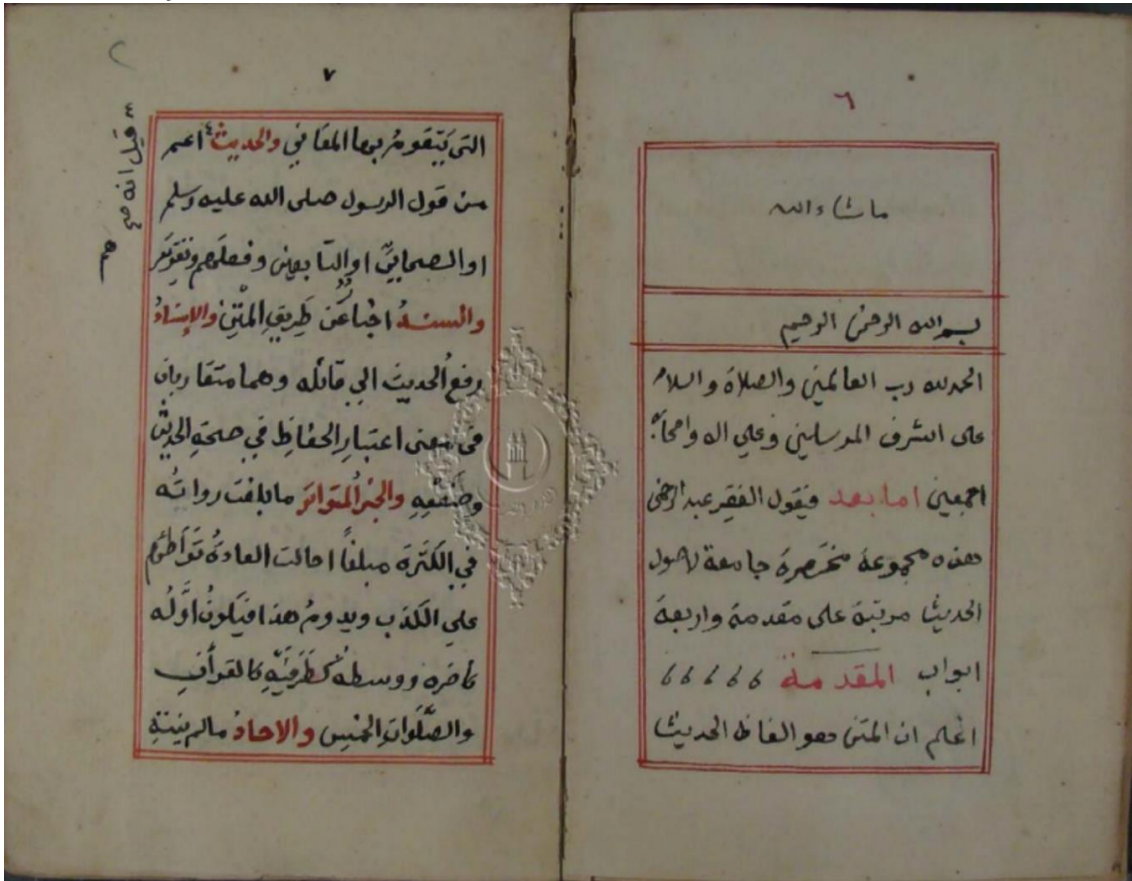 ٦
ما شاء الله
بسم الله الرحمن الرحيم
الحمد لله رب العالمين والصلاة والسلام
على اشرف المرسلين وعلي اله واصحابه
اجمعين اما بعد فيقول الفقير عبد الرحمن
هذه مجموعة مختصرة جامعة لاصول
الحديث مرتبة على مقدمة واربعة
ابواب المقدمة
اعلم ان المتن هو الفاظ الحديث
٧
التي يَتَقومُ بها المعاني والحديث اعم
من قول الرسول صلى الله عليه وسلم
او الصحابيِّ او التابعين وفعلهم وتقريرهم
والسندُ اخبارٌ عَن طَرِيقِ المَتْنِ والإسنادُ
رفعُ الحديث الي قائله وهما متقاربان
في معنى اعتبارِ الحفاظِ في صحة الحديث
وضعْفِهِ والخبرُ المتواتر ما بلغت رواته
في الكَثْرَة مبلغًا احالت العادةُ تَوَاطُئَهُم
علي الكذب ويدومُ هذا فيكونُ اَوَّلُه
كآخره ووسطه كطَرَفَيْهِ كالقرآن
والصَّلَواتِ الخمسِ والاحادُ مالم ينتهِ
قيل انه